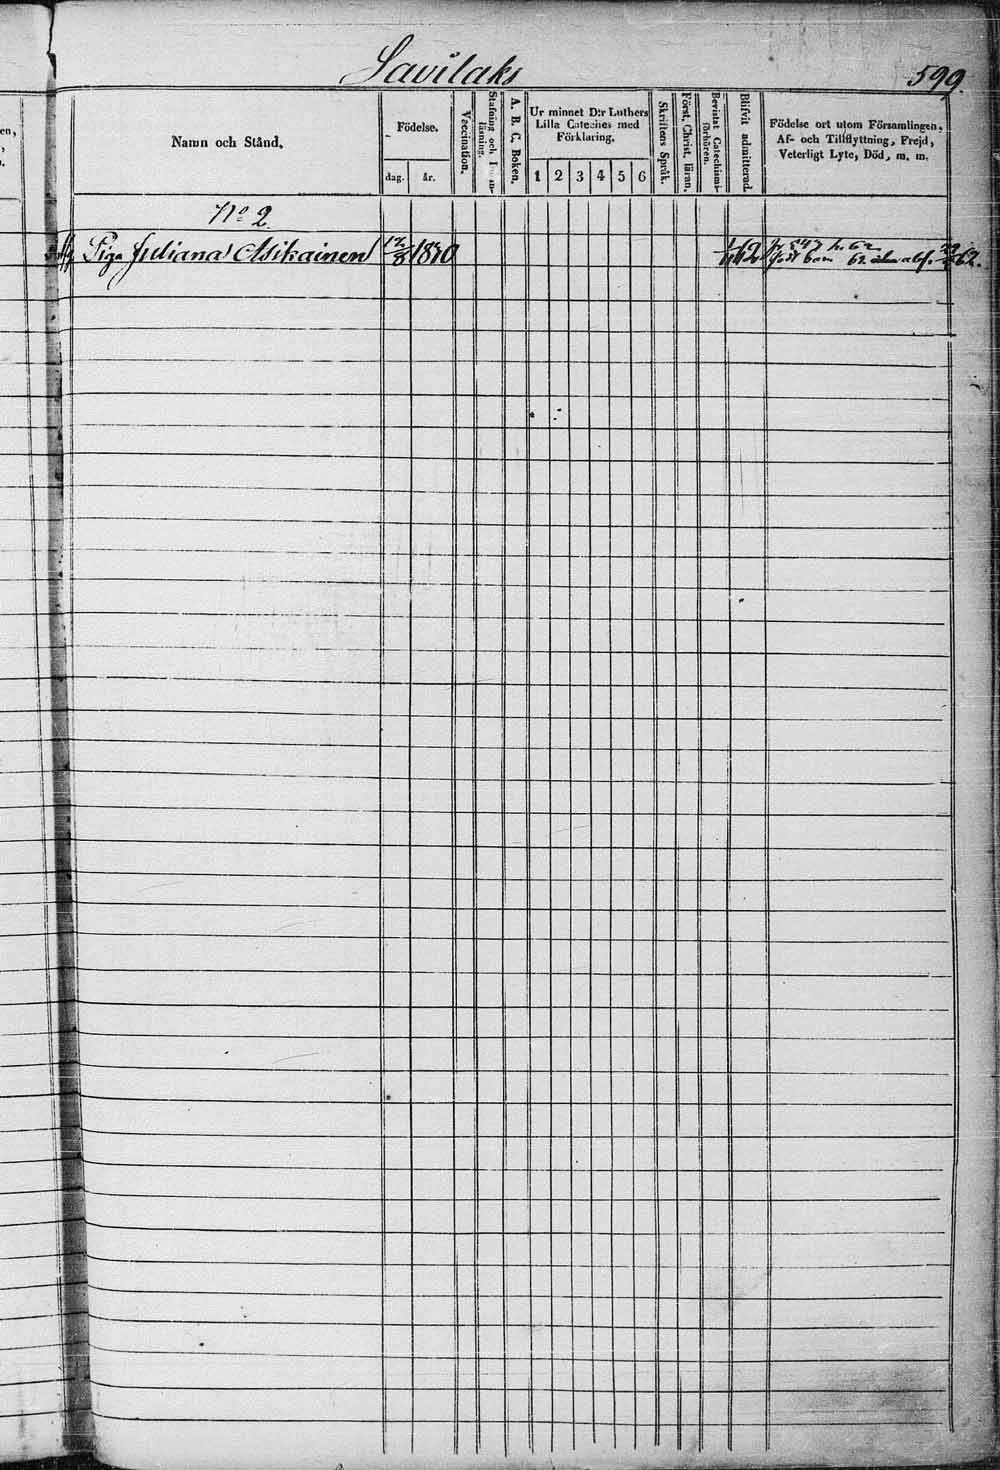 Savilaks
599.
en,
Namn och Stånd.
Födelse.
dag.
år.
Vaccination.
Stafning och Innan-
läsning.
A. B. C. Boken.
Ur minnet D:r Luthers
Lilla Cateches med
Förklaring.
1 2 3 4 5 6
Skriftens Språk.
Först. Christ. läran.
Bevistat Catechismi-
förhören.
Blifvit admitterad.
Födelse ort utom Församlingen,
Af- och Tillflyttning, Frejd,
Veterligt Lyte, Död, m. m.
No 2
Piga Juliana Asikainen 12/8 1840 fr 847 h. 62
född barn 62. abs. 62.